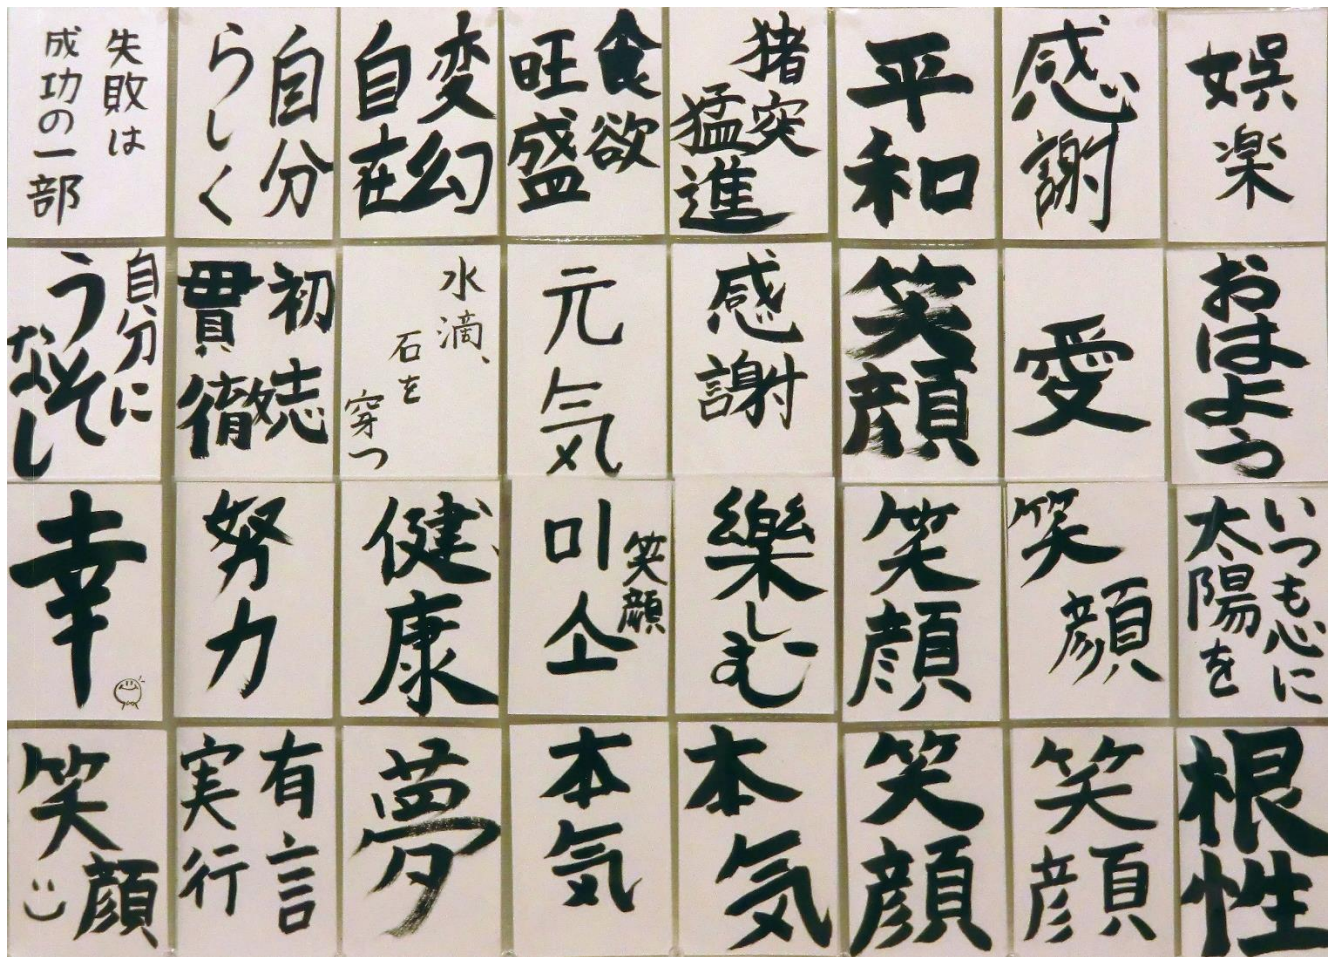 失敗は
成功の一部
自分
らしく
変幻
自在
食欲
旺盛
猪突
猛進
平和
感謝
娯楽
自分に
うそ
なし
初志
貫徹
水滴、
石を
穿つ
元気
感謝
笑顔
愛
おはよう
幸
努力
健康
笑顔
미소
樂しむ
笑顔
笑顔
いつも心に
太陽を
笑顔
有言
実行
夢
本気
本気
笑顔
笑顔
根性